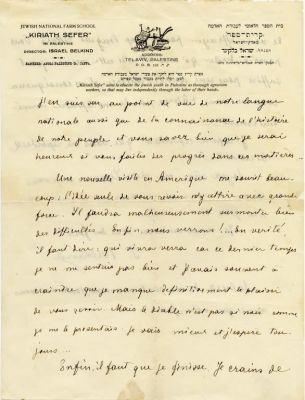 JEWISH NATIONAL FARM SCHOOL
"KIRIATH SEFER"
IN PALESTINE
DIRECTOR: ISRAEL BELKIND
BANKERS: ANGLO-PALESTINE Co. JAFFA.
ADDRESS:
TEL-AVIV, PALESTINE
P.O.B.
בית הספר הלאומי לעבודת האדמה
קרית־ספר
בארץ־ישראל
המנהל: ישראל בלקינד
"Kiriath Sefer" aims to educate the Jewish youth in Palestine as thorough agrarians
in order, so that they live independently through the labor of their hands
J'en suis sûr, au point de vue de notre langue
nationale aussi que de la connaissance de l'histoire
de notre peuple et vous savez bien que je serai
heureux si vous faites des progrès dans ces matières...
Une nouvelle visite en Amérique me sourit beau-
coup. L'idée seule de vous revoir m'y attire avec grande
force. Il faudra malheureusement surmonter bien
des difficultés. Enfin, nous verrons!... En vérité
il faut dire: qui vivra verra car ce dernier temps
je ne me sentais pas bien et j'avais souvent à
craindre que je manque définitivement le plaisir
de vous revoir. Mais le diable n'est pas si noir comme
je me le présentais. Je vais mieux et j'espère tou-
jours...
Enfin, il faut que je finisse. Je crains de